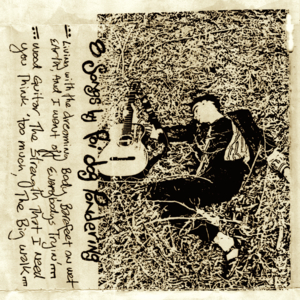 8 Songs by Poi Dog Pondering
Living with the Dreaming Body, Barefoot on wet
Earth, And I want off, Everybody's Tryin',
Wood Guitar, The Strength That I need
You Think too much, The Big walk